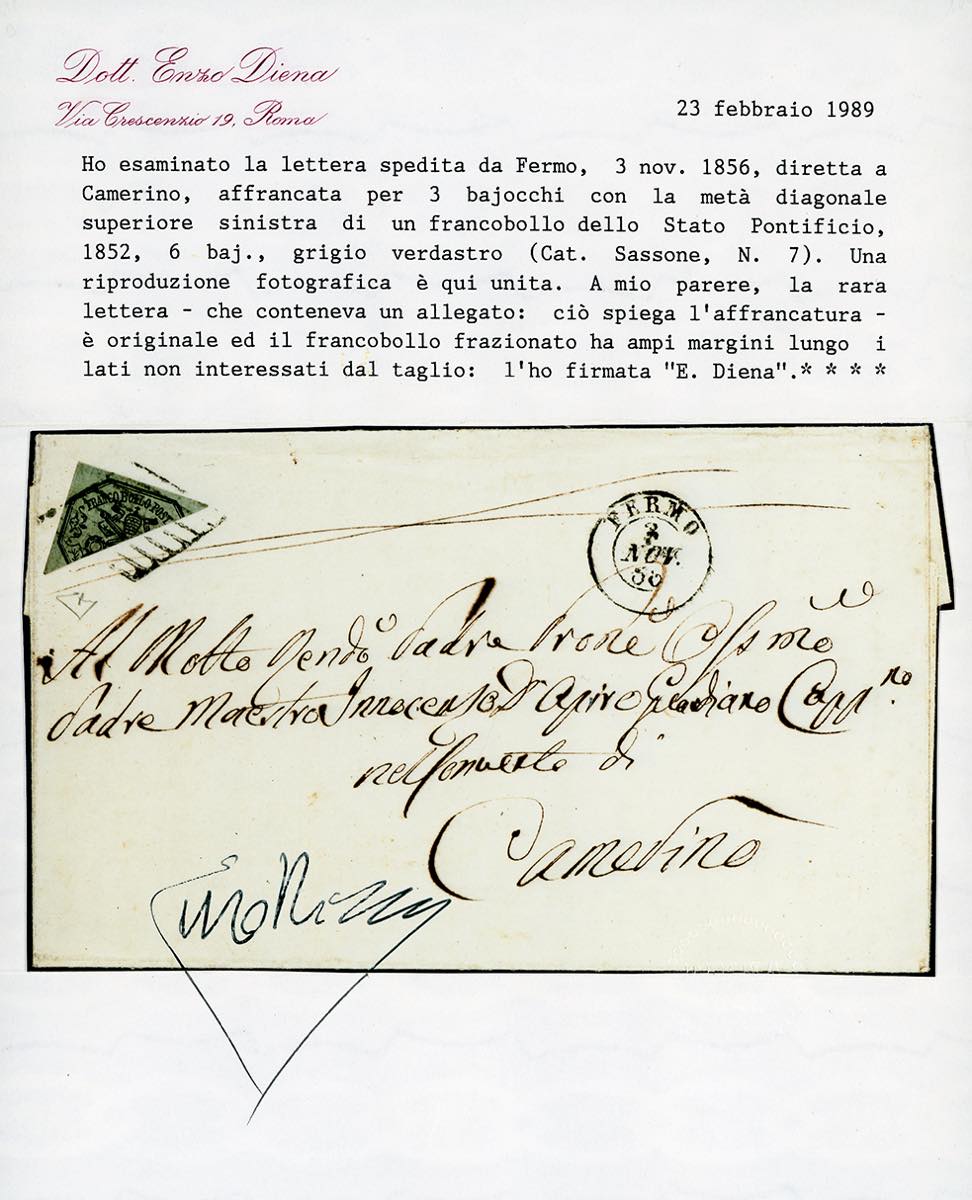 Dott. Enzo Diena
Via Crescenzio 19, Roma
23 febbraio 1989
Ho esaminato la lettera spedita da Fermo, 3 nov. 1856, diretta a
Camerino, affrancata per 3 bajocchi con la metà diagonale
superiore sinistra di un francobollo dello Stato Pontificio,
1852, 6 baj., grigio verdastro (Cat. Sassone, N. 7). Una
riproduzione fotografica è qui unita. A mio parere, la rara
lettera - che conteneva un allegato: ciò spiega l'affrancatura -
è originale ed il francobollo frazionato ha ampi margini lungo i
lati non interessati dal taglio: l'ho firmata "E. Diena".* * * *
FRANCO BOLLO POST
FERMO
3
NOV.
56
Al Molto Rendo Padre Prone Ossmo
Padre Maestro Innocenso D'Apiro Guardiano Cappno.
nel Convento di
Camerino